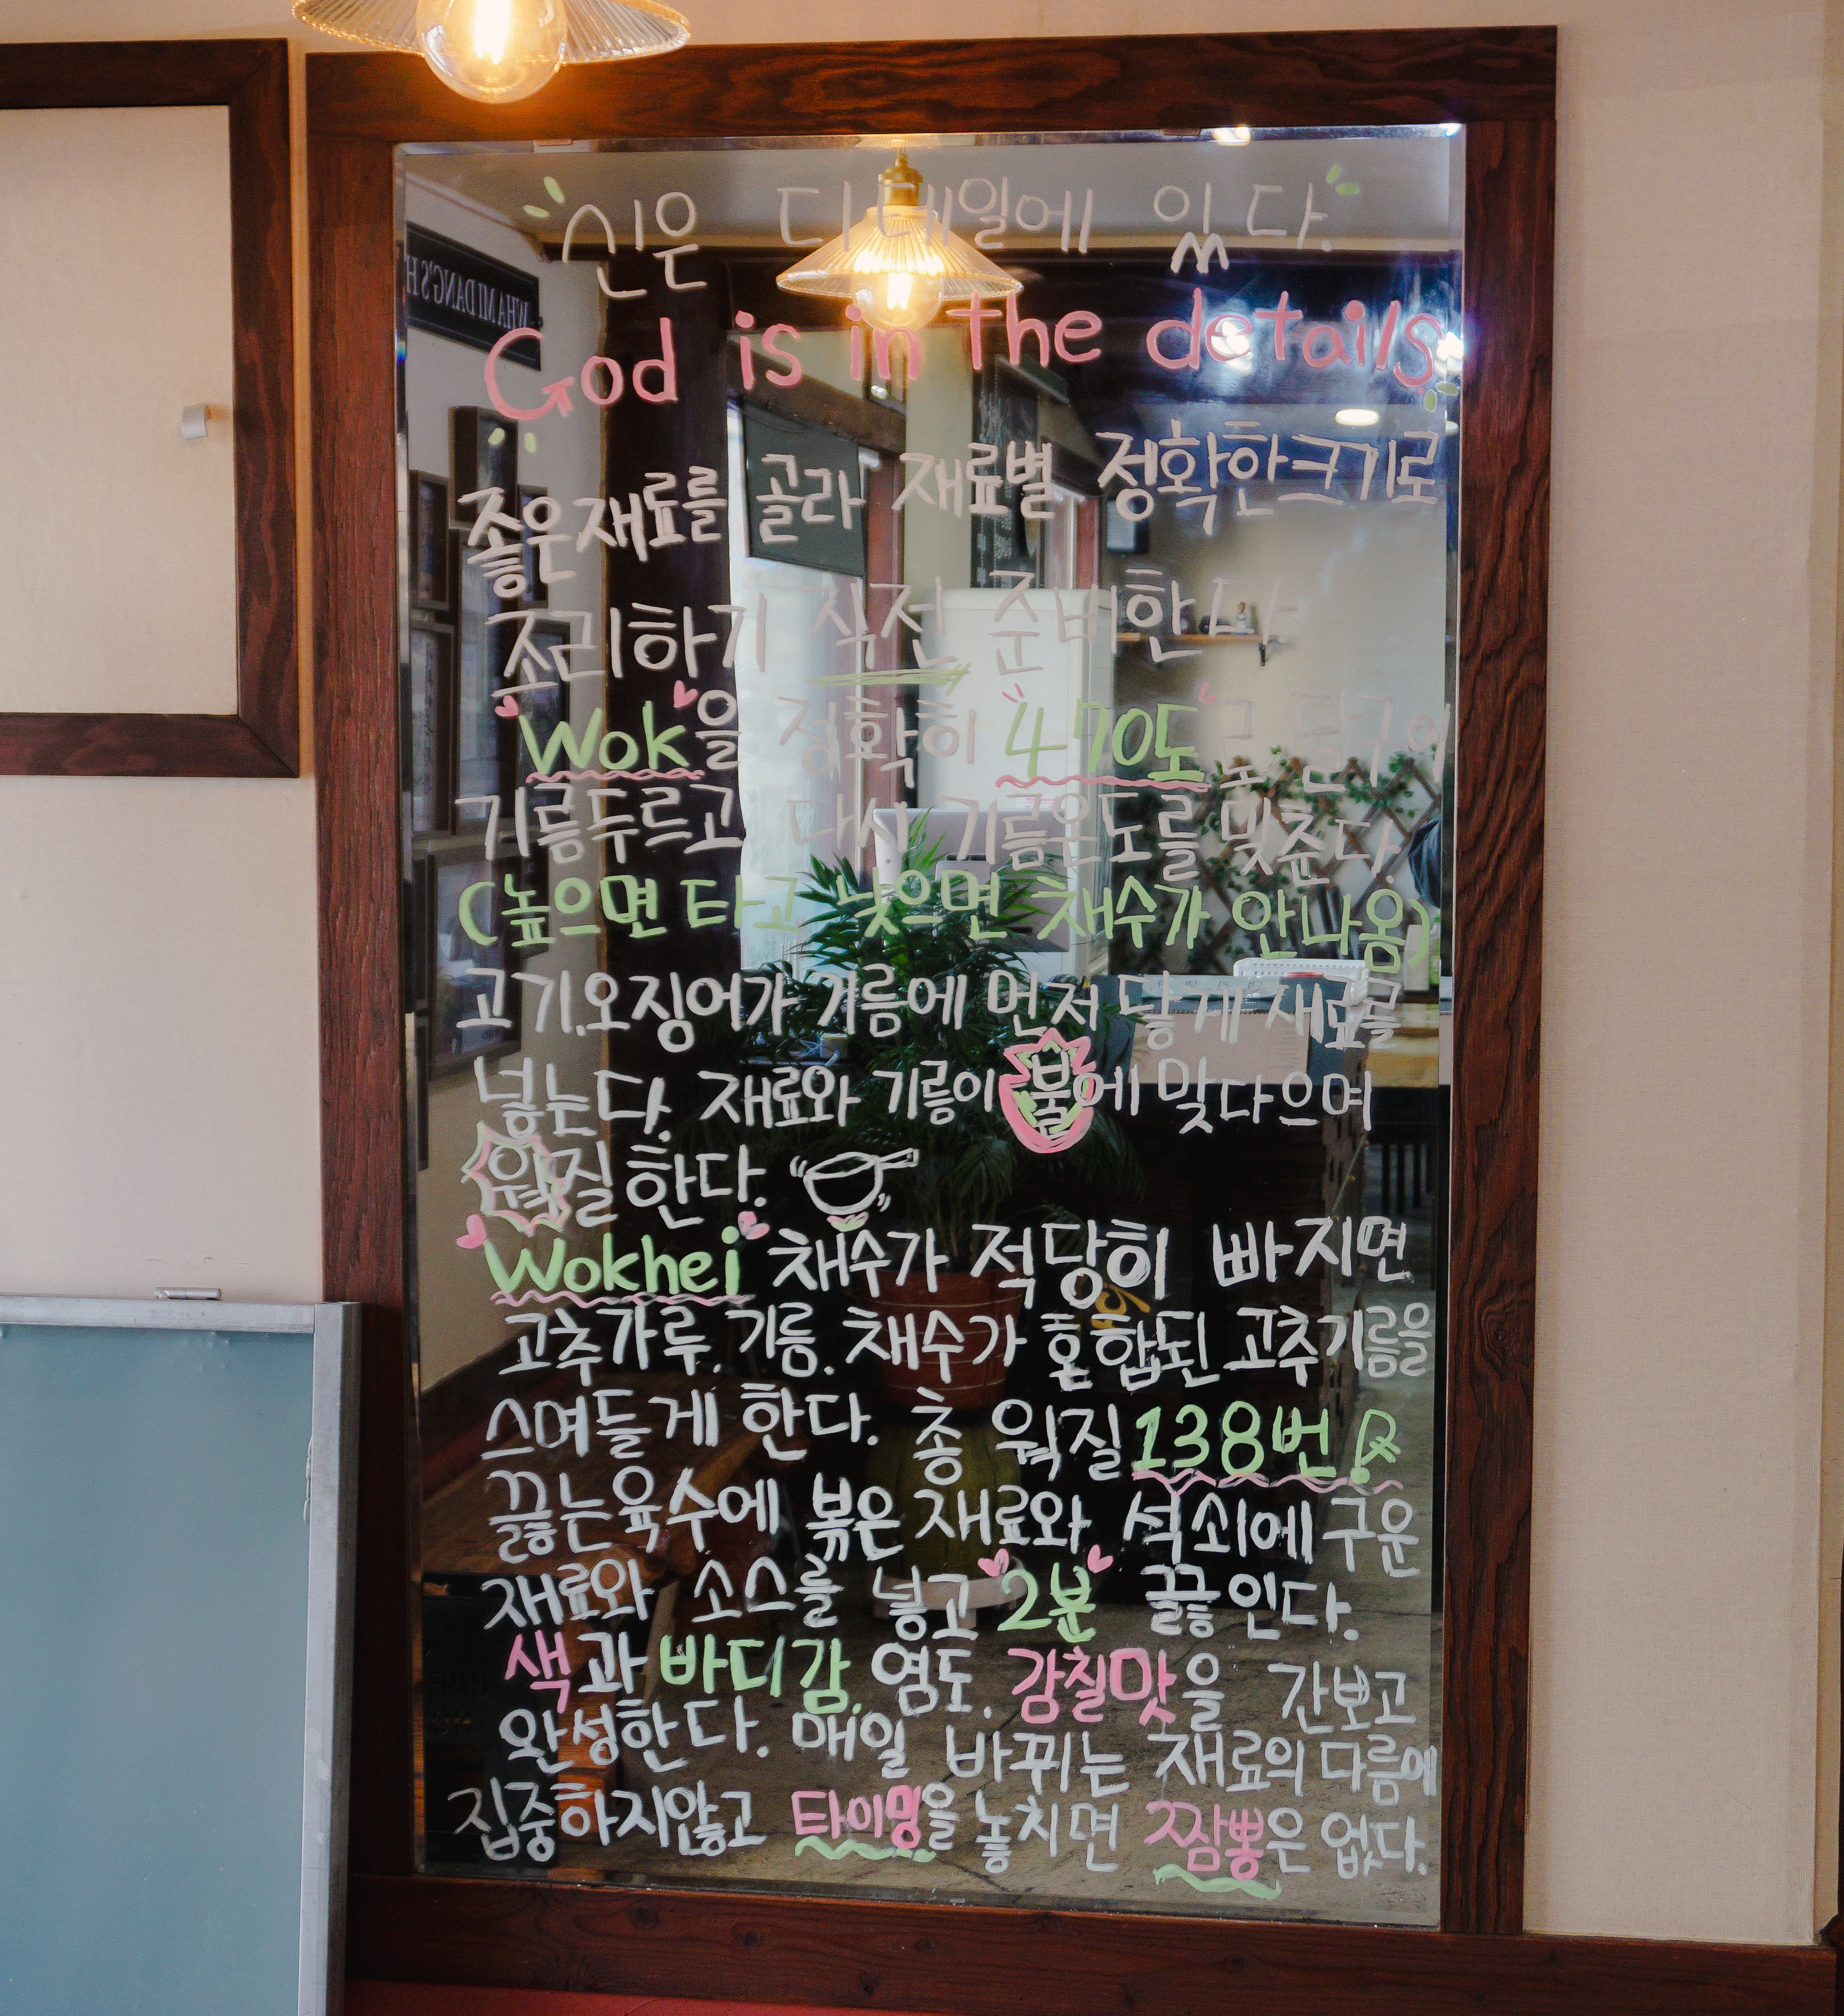 신은 디테일에 있다.
God is in the details.
좋은재료를 골라 재료별 정확한크기로
조리하기 직전 준비한다
Wok을 정확히 "470도"로 달구어
기름두르고 다시 기름온도를 맞춘다.
(높으면 타고 낮으면 채수가 안나옴)
고기.오징어가 기름에 먼저 닿게 재료를
넣는다. 재료와 기름이 불에 맞다으며
웍질한다.
Wokhei 채수가 적당히 빠지면
고추가루. 기름. 채수가 혼합된 고추기름을
스며들게 한다. 총 웍질 138번
끓는육수에 볶은 재료와 석쇠에 구운
재료와 소스를 넣고 2분 끓인다.
색과 바디감. 염도. 감칠맛을 간보고
완성한다. 매일 바뀌는 재료의 다름에
집중하지않고 타이밍을 놓치면 짬뽕은 없다.
WHA MI DANG'S H